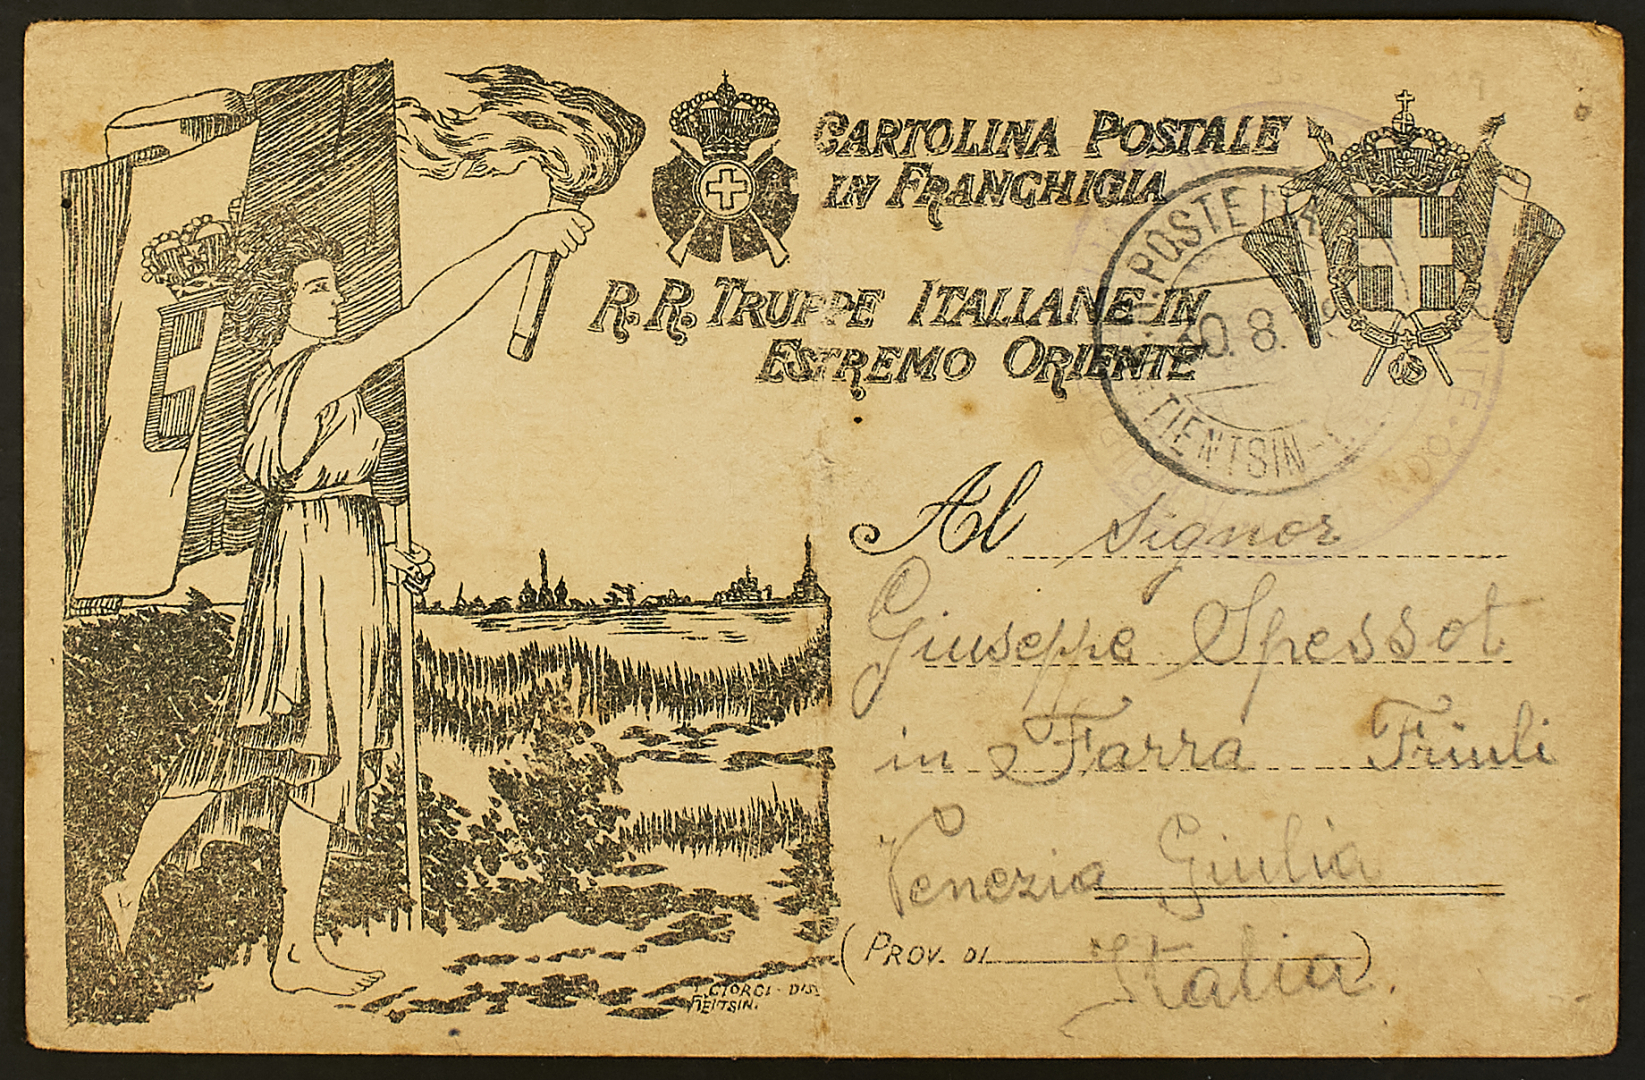 CARTOLINA POSTALE
IN FRANCHIGIA
R.R. TRUPPE ITALIANE IN
ESTREMO ORIENTE
POSTE ITA
30.8.19
TIENTSIN-
Al Signor
Giuseppe Spessot
in Farra Friuli
Venezia Giulia
(PROV. DI )
Italia.
GIORGI - DIS.
TIENTSIN.